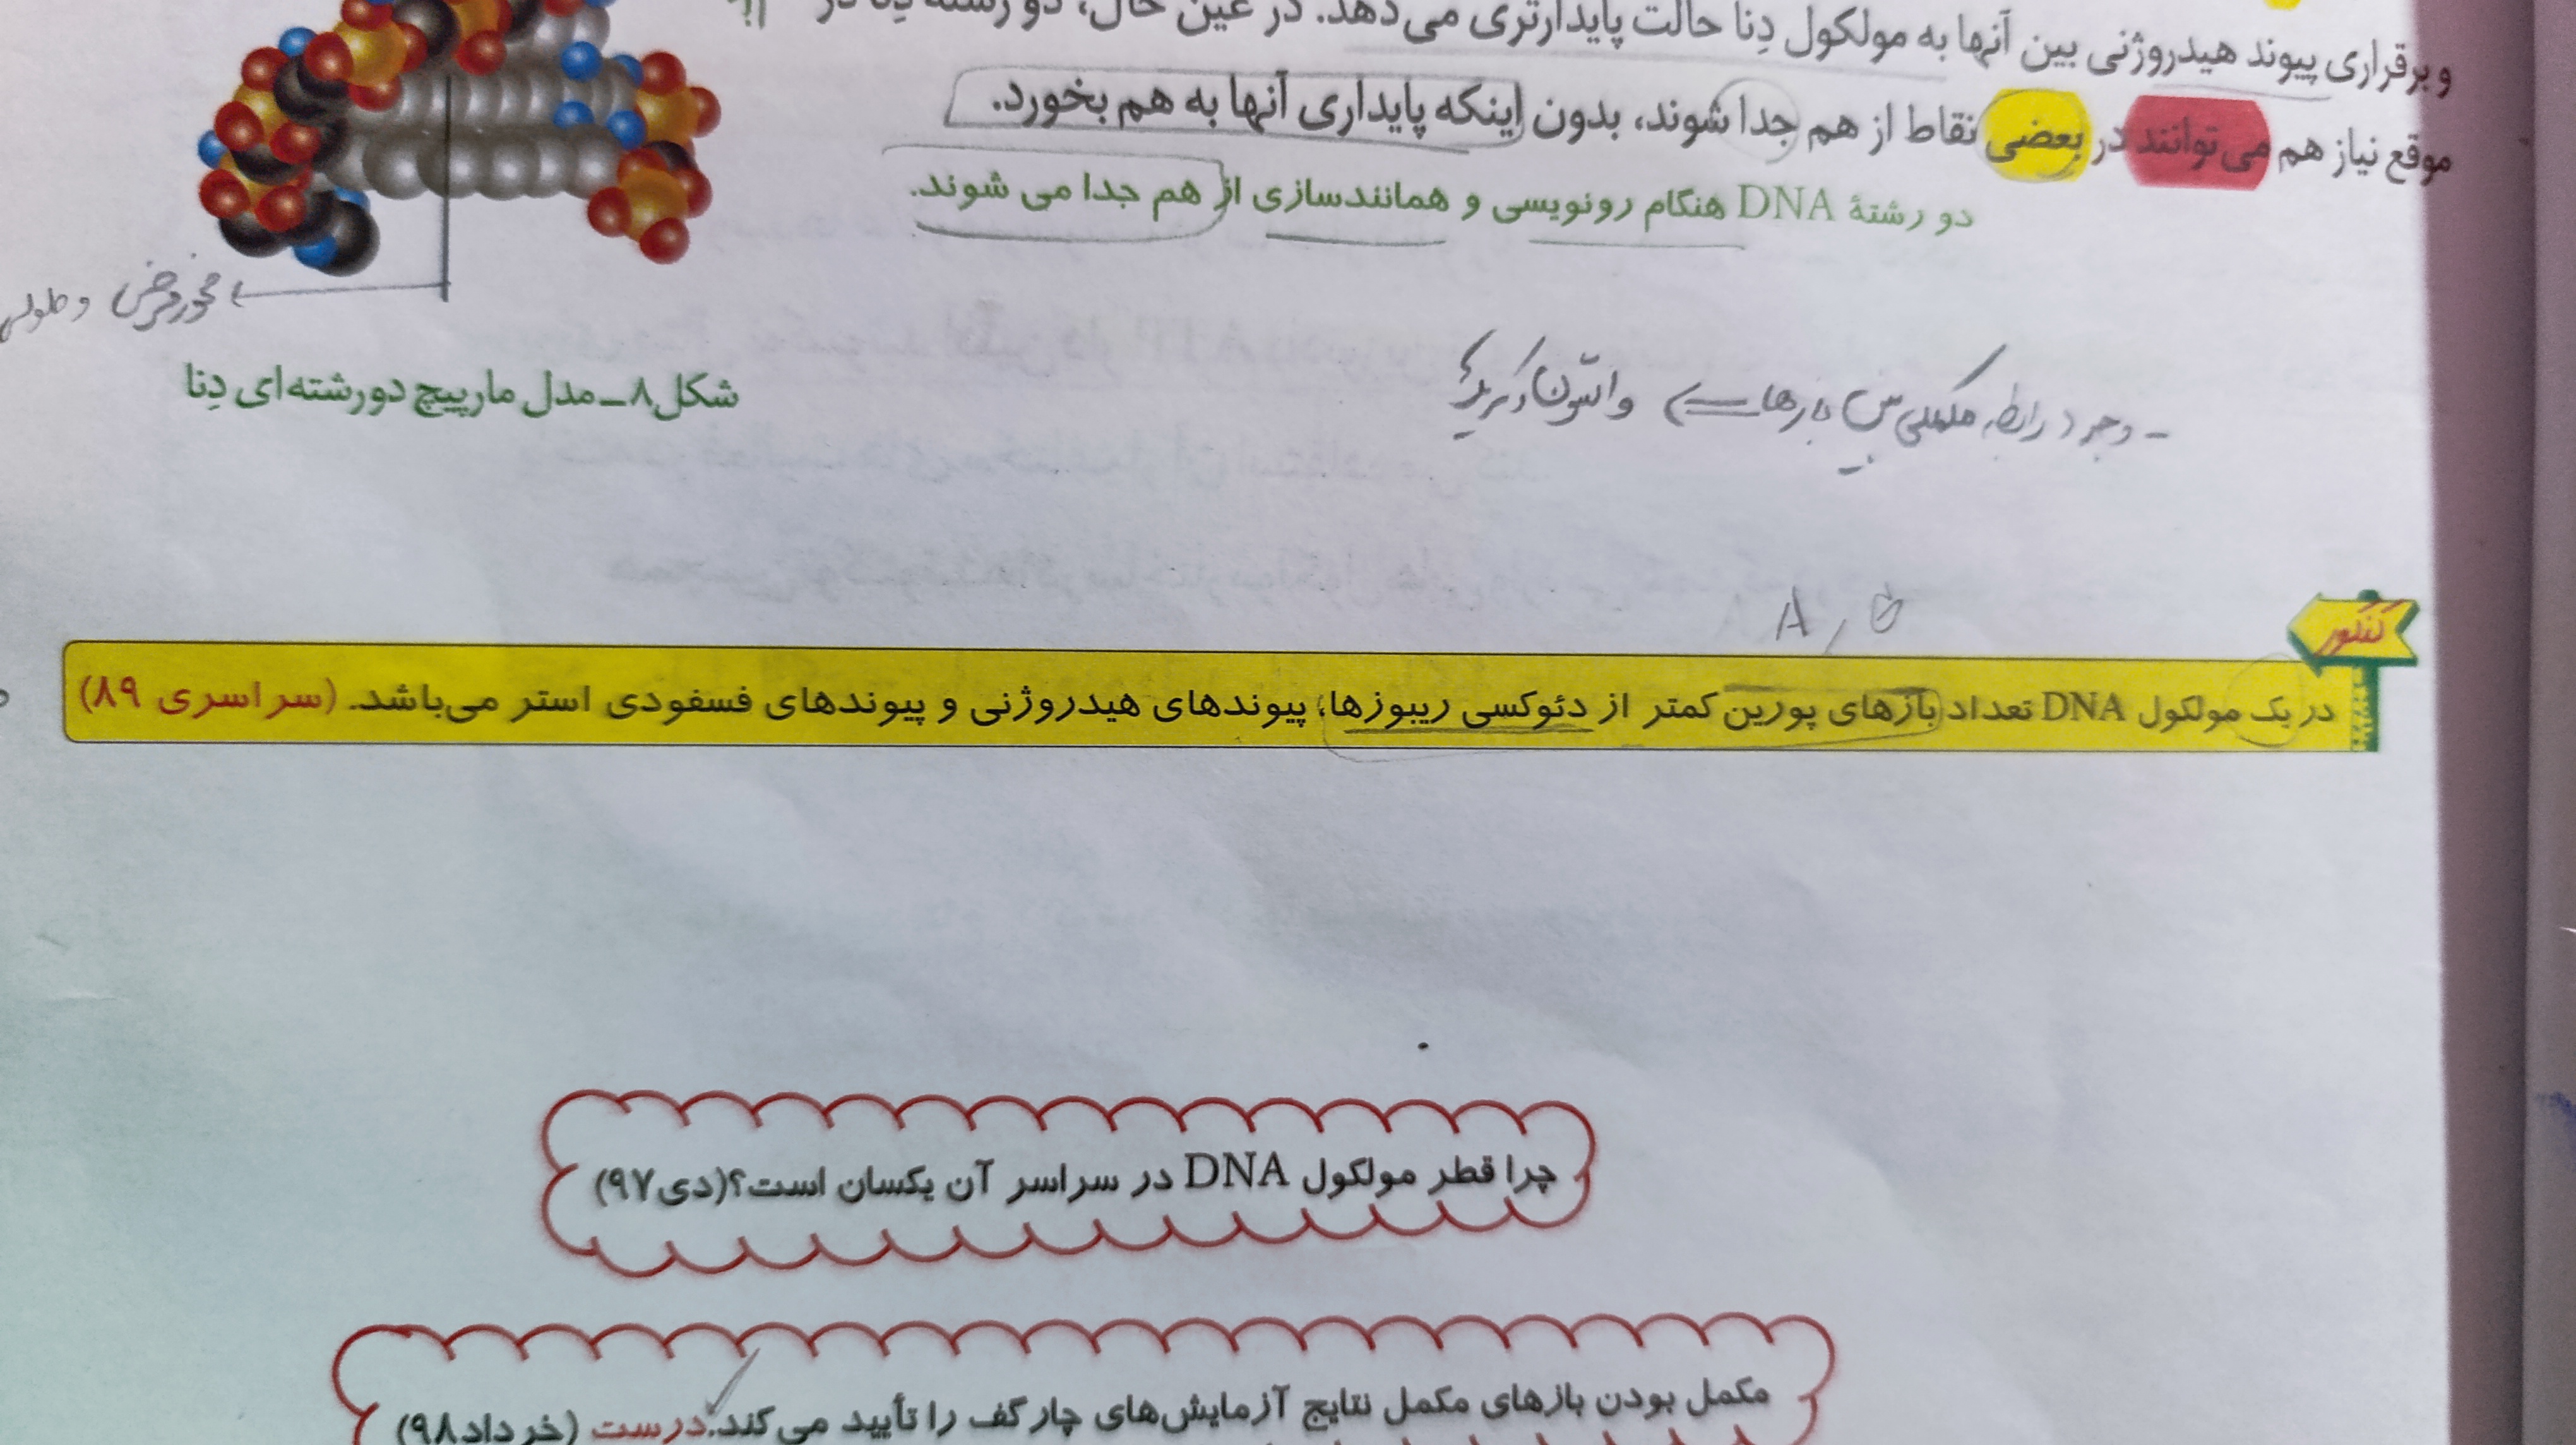 و برقراری پیوند هیدروژنی بین آنها به مولکول دِنا حالت پایدارتری می‌دهد. در عین حال، دو رشته دِنا در
موقع نیاز هم می‌توانند در بعضی نقاط از هم جدا شوند، بدون اینکه پایداری آنها به هم بخورد.
دو رشتهٔ DNA هنگام رونویسی و همانندسازی از هم جدا می شوند.
محور فرضی و طولی
شکل ۸ـ مدل مارپیچ دو رشته‌ای دِنا
- وجود رابطه مکملی بین بازها واتسون و کریک
A , G
کنکور
در یک مولکول DNA تعداد بازهای پورین کمتر از دئوکسی ریبوزها، پیوندهای هیدروژنی و پیوندهای فسفودی استر می‌باشد. (سراسری ۸۹)
چرا قطر مولکول DNA در سراسر آن یکسان است؟(دی۹۷)
مکمل بودن بازهای مکمل نتایج آزمایش‌های چارگف را تأیید می‌کند.درست (خرداد۹۸)